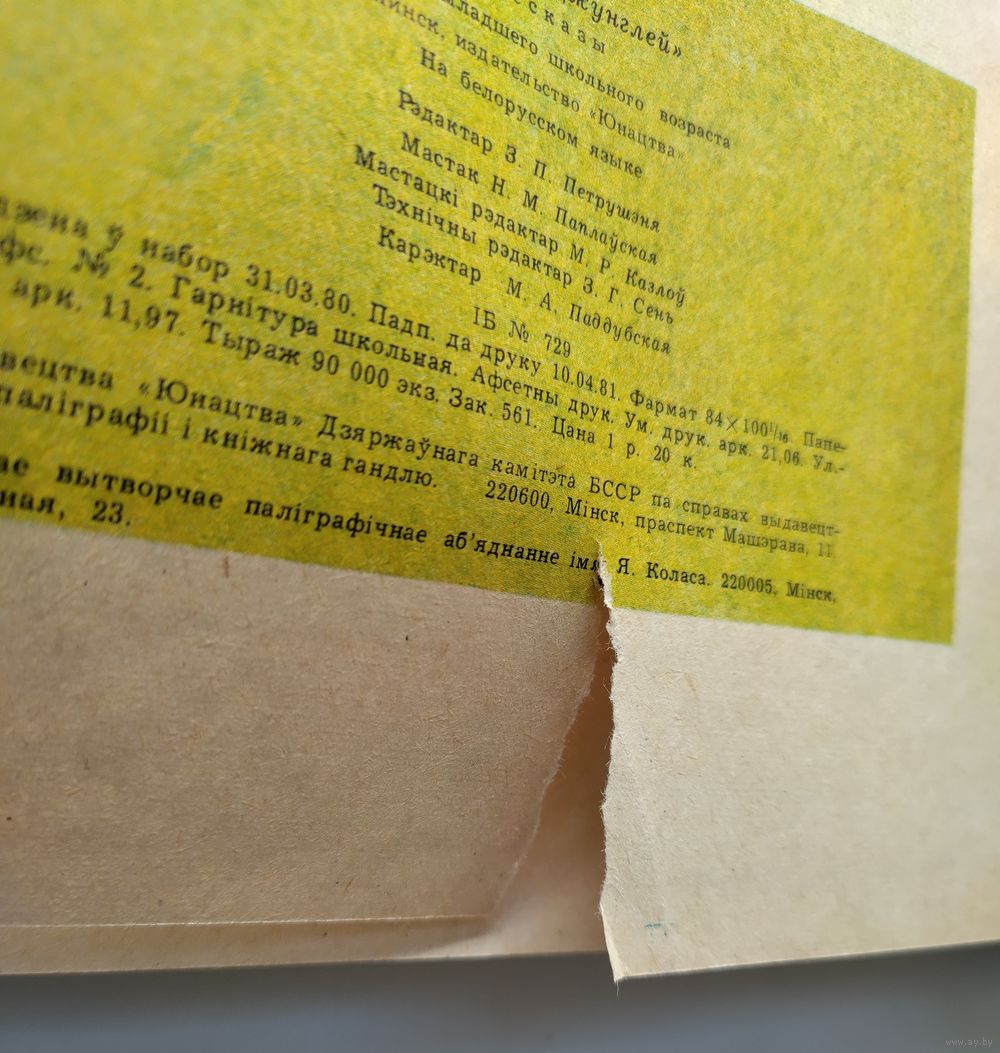 жунглей»
сказы
младшего школьного возраста
Минск, издательство «Юнацтва»
На белорусском языке
Рэдактар З. П. Петрушэня
Мастак Н. М. Паплаўская
Мастацкі рэдактар М. Р. Казлоў
Тэхнічны рэдактар З. Г. Сень
Карэктар М. А. Паддубская
ІБ № 729
ў набор 31.03.80. Падп. да друку 10.04.81. Фармат 84×100 1/16. Папе-
фс. № 2. Гарнітура школьная. Афсетны друк. Ум. друк. арк. 21,06. Ул.-
арк. 11,97. Тыраж 90 000 экз. Зак. 561. Цана 1 р. 20 к.
вецтва «Юнацтва» Дзяржаўнага камітэта БССР па справах выдавецт-
паліграфіі і кніжнага гандлю. 220600, Мінск, праспект Машэрава, 11.
ае вытворчае паліграфічнае аб'яднанне імя Я. Коласа. 220005, Мінск,
ная, 23.
www.ay.by